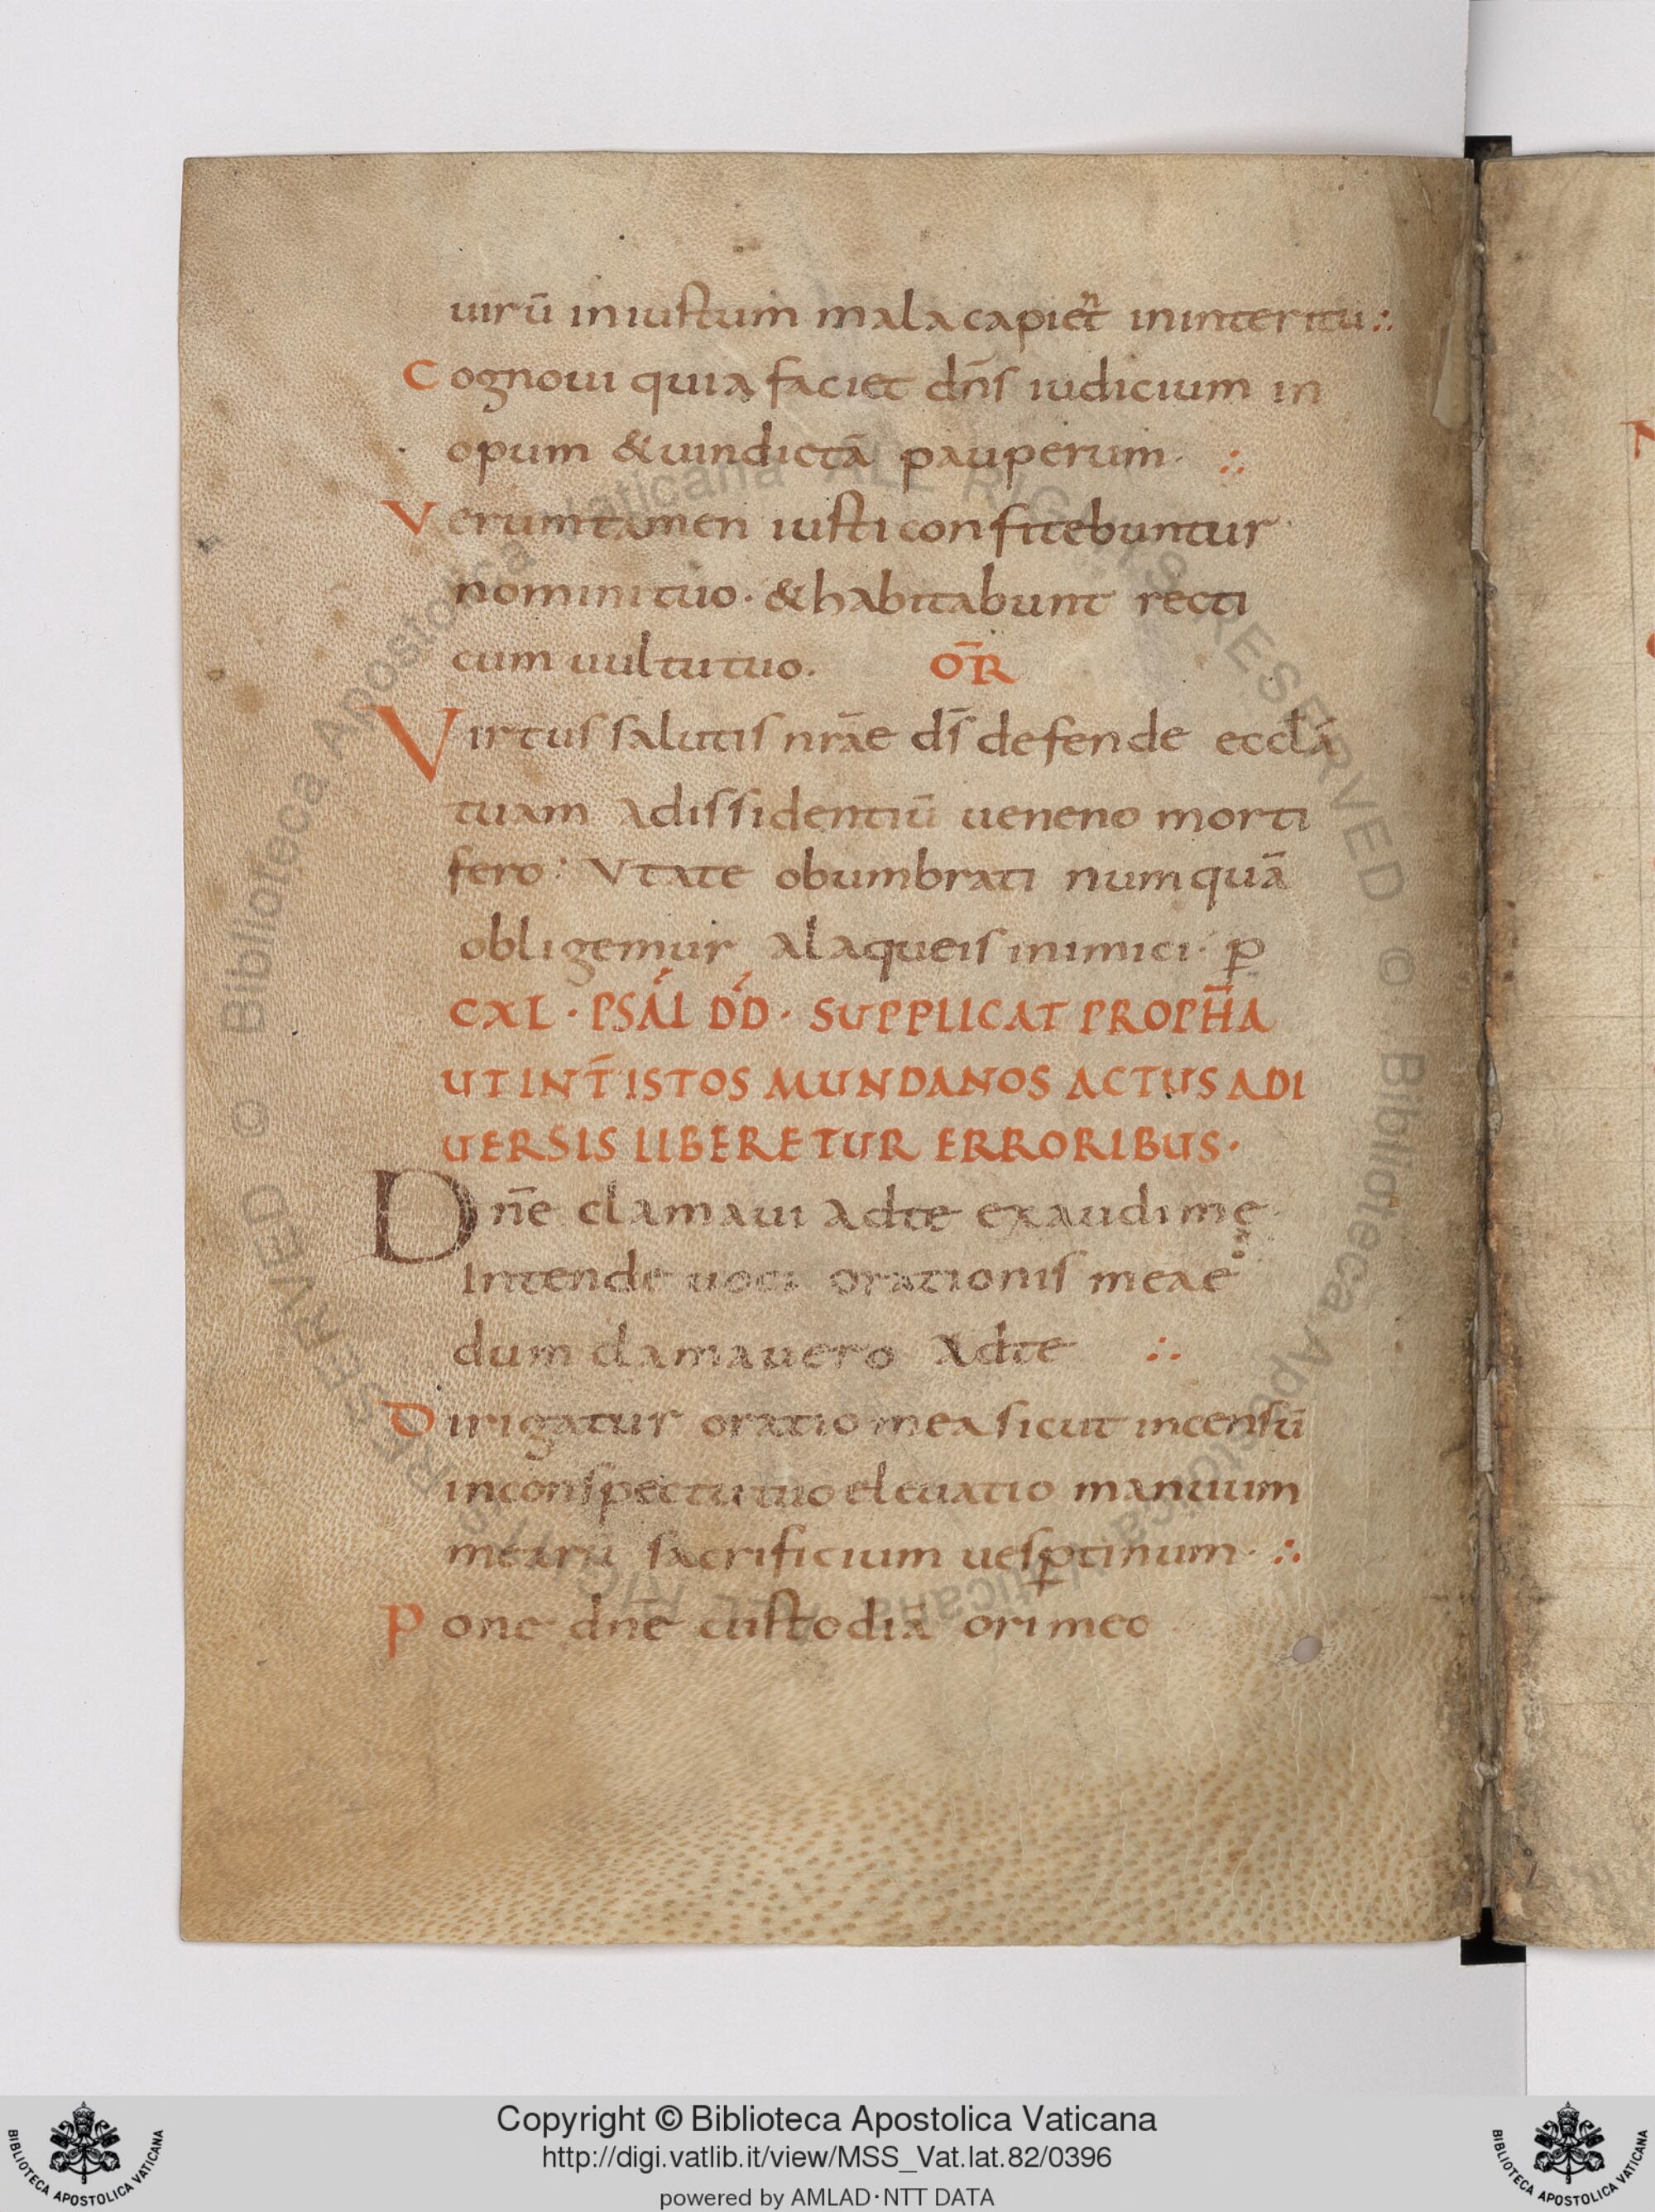 uirū iniustum mala capiet<sup>n</sup> in interitu ∴
Cognoui quia faciet dn̄s iudicium in
opum & uindictā pauperum · ∴
Verumtamen iusti confitebuntur
nomini tuo · & habitabunt recti
cum uultu tuo. OR̄
Virtus salutis nrāe ds̄ defende ecclā
tuam a dissidentiū ueneno morti
fero : Ut a te obumbrati numquā
obligemur a laqueis inimici · p̱
CXL · PSAL DD · SUPPLICAT PROPH̄A
UT INT̄ ISTOS MUNDANOS ACTUS A DI
UERSIS LIBERETUR ERRORIBUS ·
Dn̄e clamaui ad te exaudi me
Intende uoci orationis meae
dum clamauero ad te ∴
Dirigatur oratio mea sicut incensū
in conspectu tuo eleuatio manuum
mearū sacrificium uesp̱tinum · ∴
Pone dn̄e custodiā ori meo
Copyright © Biblioteca Apostolica Vaticana
http://digi.vatlib.it/view/MSS_Vat.lat.82/0396
powered by AMLAD·NTT DATA
BIBLIOTECA APOSTOLICA VATICANA
BIBLIOTECA APOSTOLICA VATICANA
© Biblioteca Apostolica Vaticana ALL RIGHTS RESERVED © Biblioteca Apostolica Vaticana ALL RIGHTS RESERVED